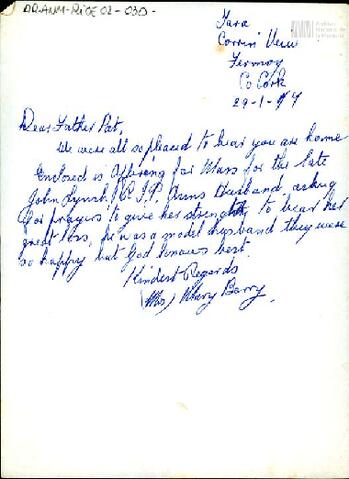 AR-ANM-RICE 02-03D-
Archivo
Nacional de
la Memoria
Tara
Corrin View
Fermoy
Co Cork
29-1-77
Dear Father Pat,
We were all so pleased to hear you are home
Enclosed is Offering for Mass for the late
John Lynch, R.I.P. Anns Husband, asking
for prayers to give her strength to bear her
great loss, he was a model husband they were
so happy but God knows best.
Kindest Regards
(Mrs) Mary Barry.